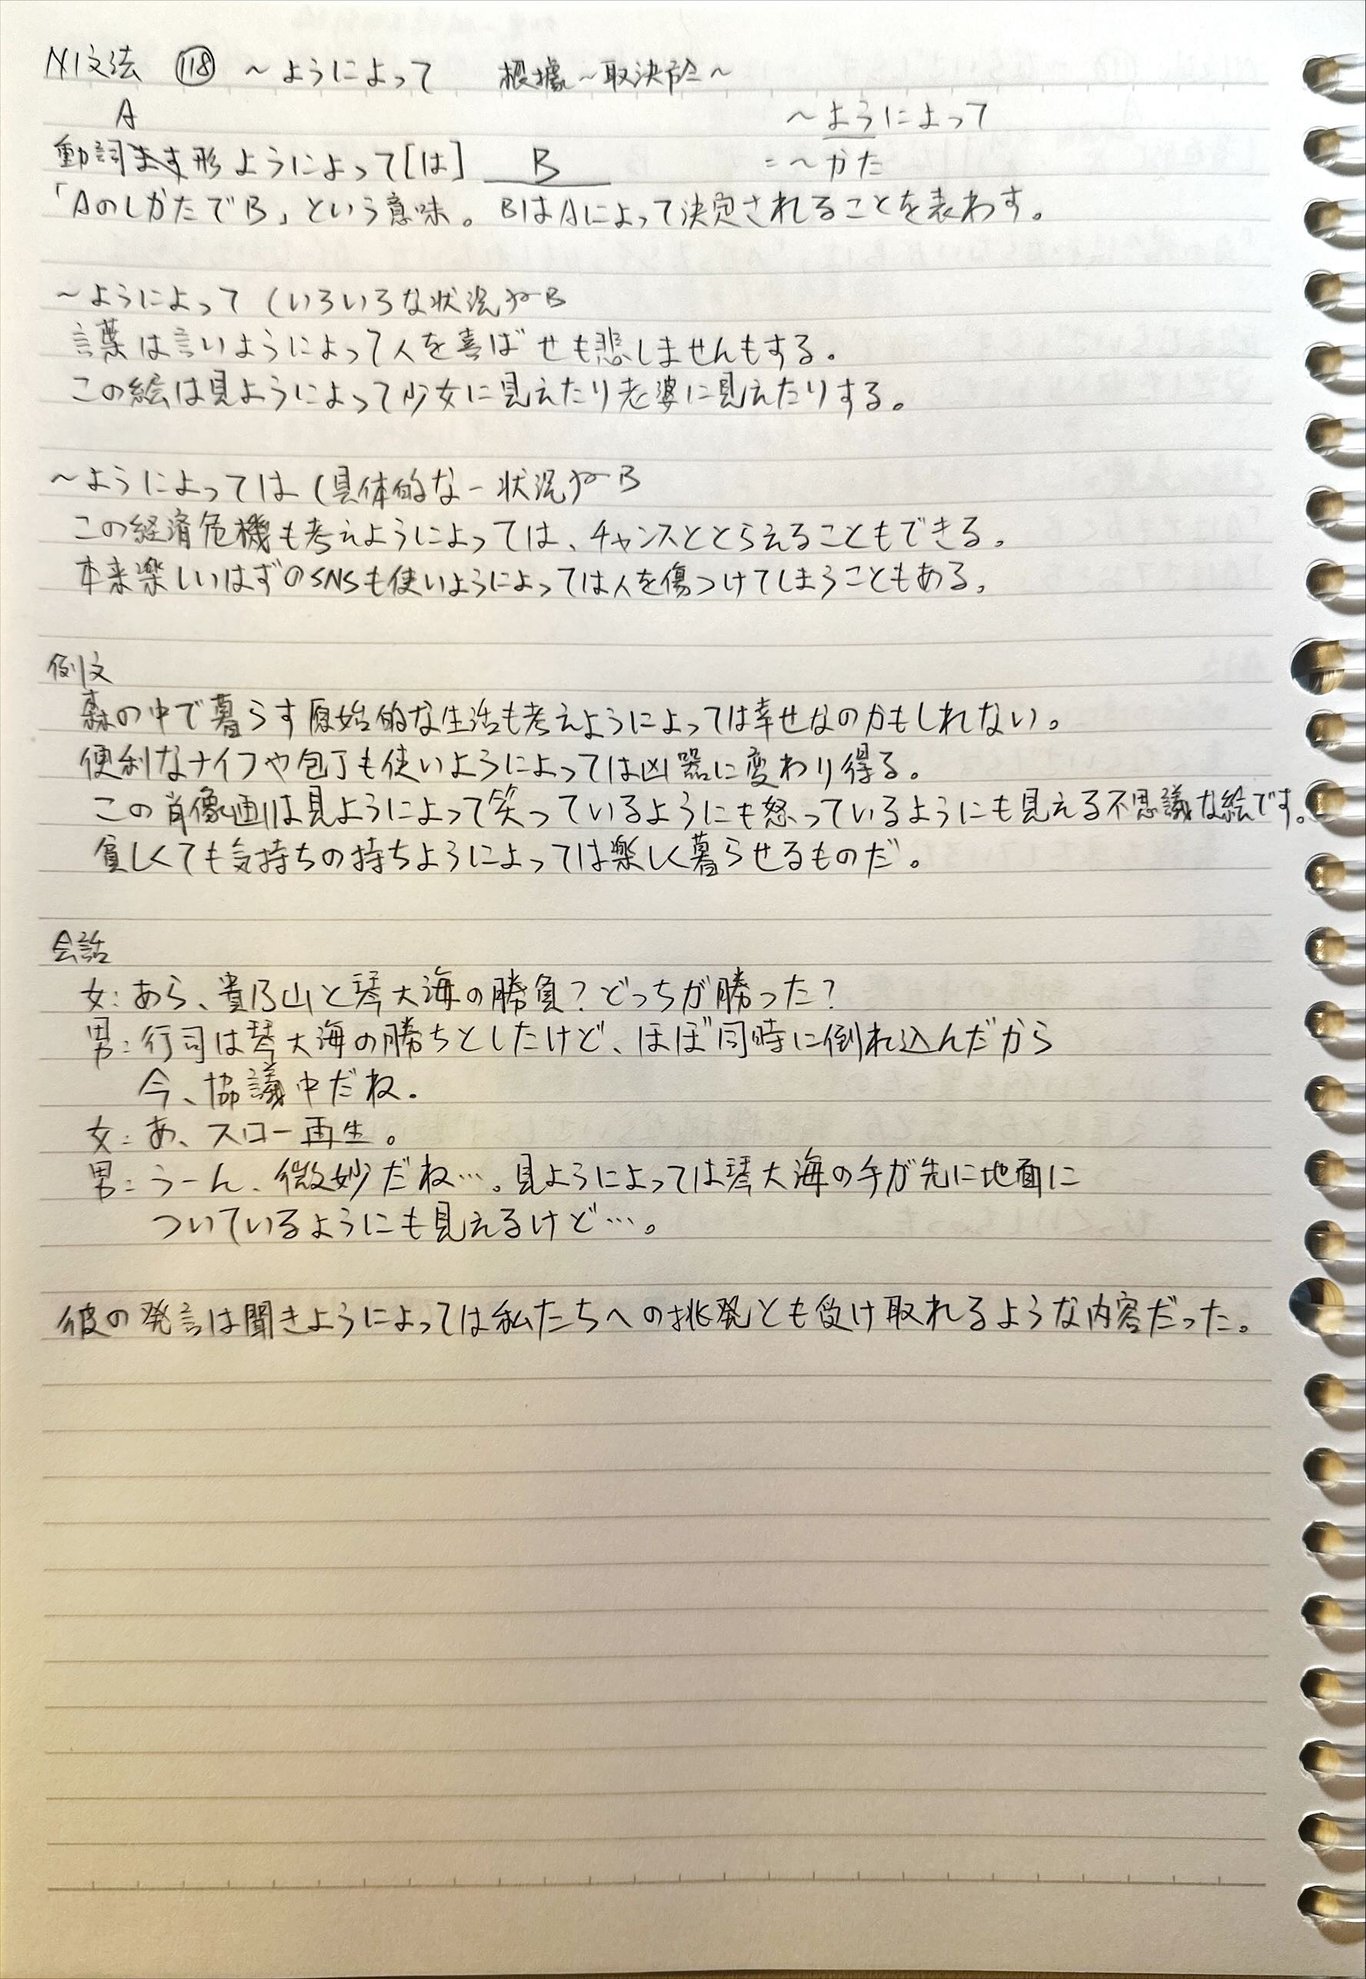 N1文法 ⑱ ～ようによって 根據～取決於～
A ～ようによって
動詞ます形ようによって[は] B =～かた
「AのしかたでB」という意味。BはAによって決定されることを表わす。
～ようによって (いろいろな状況)→B
言葉は言いようによって人を喜ばせも悲しませんもする。
この絵は見ようによって少女に見えたり老婆に見えたりする。
～ようによっては (具体的な一状況)→B
この経済危機も考えようによっては、チャンスととらえることもできる。
本来楽しいはずのSNSも使いようによっては人を傷つけてしまうこともある。
例文
森の中で暮らす原始的な生活も考えようによっては幸せなのかもしれない。
便利なナイフや包丁も使いようによっては凶器に変わり得る。
この肖像画は見ようによって笑っているようにも怒っているようにも見える不思議な絵です。
貧しくても気持ちの持ちようによっては楽しく暮らせるものだ。
会話
女:あら、貴乃山と琴大海の勝負?どっちが勝った?
男:行司は琴大海の勝ちとしたけど、ほぼ同時に倒れ込んだから
今、協議中だね。
女:あ、スロー再生。
男:うーん、微妙だね…。見ようによっては琴大海の手が先に地面に
ついているようにも見えるけど…。
彼の発言は聞きようによっては私たちへの挑発とも受け取れるような内容だった。